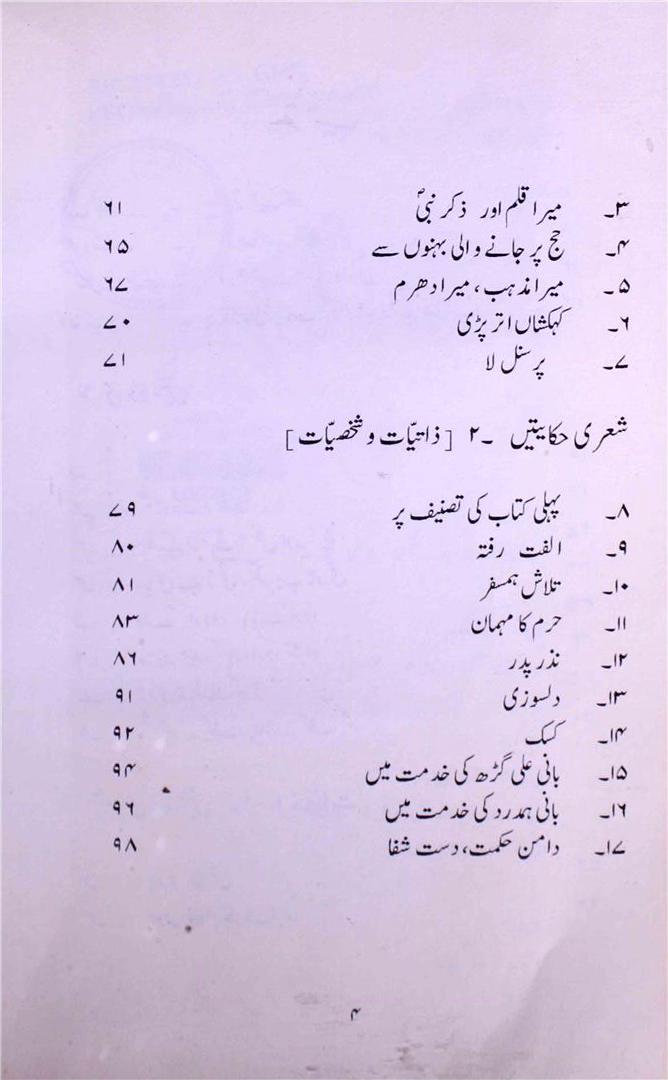 ۳۔ میرا قلم اور ذکر نبیؐ ۶۱
۴۔ حج پر جانے والی بہنوں سے ۶۵
۵۔ میرا مذہب، میرا دھرم ۶۷
۶۔ کہکشاں اتر پڑی ۷۰
۷۔ پرسنل لا ۷۱
شعری حکایتیں ۲۔ [ذاتیّات و شخصیّات]
۸۔ پہلی کتاب کی تصنیف پر ۷۹
۹۔ الفت رفتہ ۸۰
۱۰۔ تلاش ہمسفر ۸۱
۱۱۔ حرم کا مہمان ۸۳
۱۲۔ نذر پدر ۸۶
۱۳۔ دلسوزی ۹۱
۱۴۔ کسک ۹۲
۱۵۔ بانی علی گڑھ کی خدمت میں ۹۴
۱۶۔ بانی ہمدرد کی خدمت میں ۹۶
۱۷۔ دامن حکمت، دست شفا ۹۸
۴